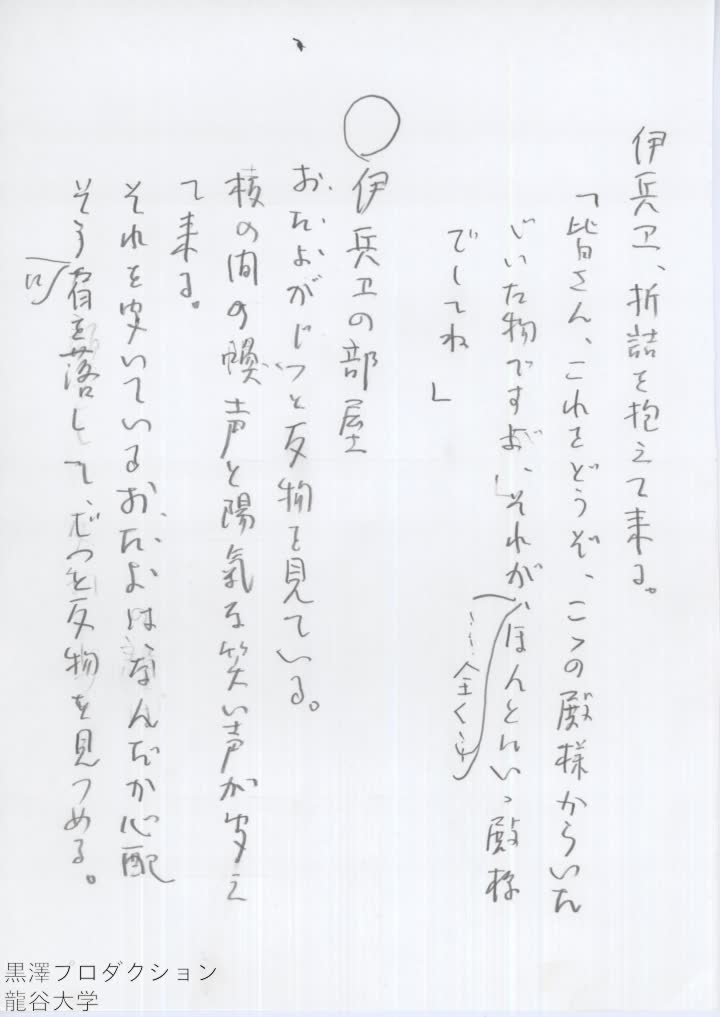 伊兵ヱ、折詰を抱えて来る。
「皆さん、これをどうぞ、こゝの殿様からいた
ゞいた物ですよ、」それがほんとにいゝ殿様
……全く
でしてね」
○伊兵ヱの部屋
おたよがじっと反物を見ている。
の間の声と陽氣な笑い声が聞え
て来る。
それを聞いているおたよは、なんだか心配
そう肩を落して、じっと反物を見つめる。
に
黒澤プロダクション
龍谷大学